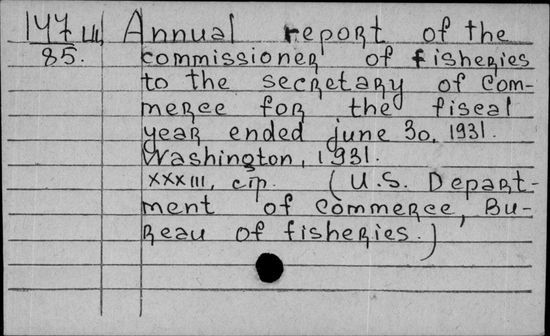 147 III, Annual report of the
85. commissioner of fisheries
to the secretary of Com-
merce for the fiscal
year ended june 30, 1931.
Washington, 1931.
XXXIII, стр. (U.S. Depart-
ment of Commerce, Bu-
reau of fisheries.)